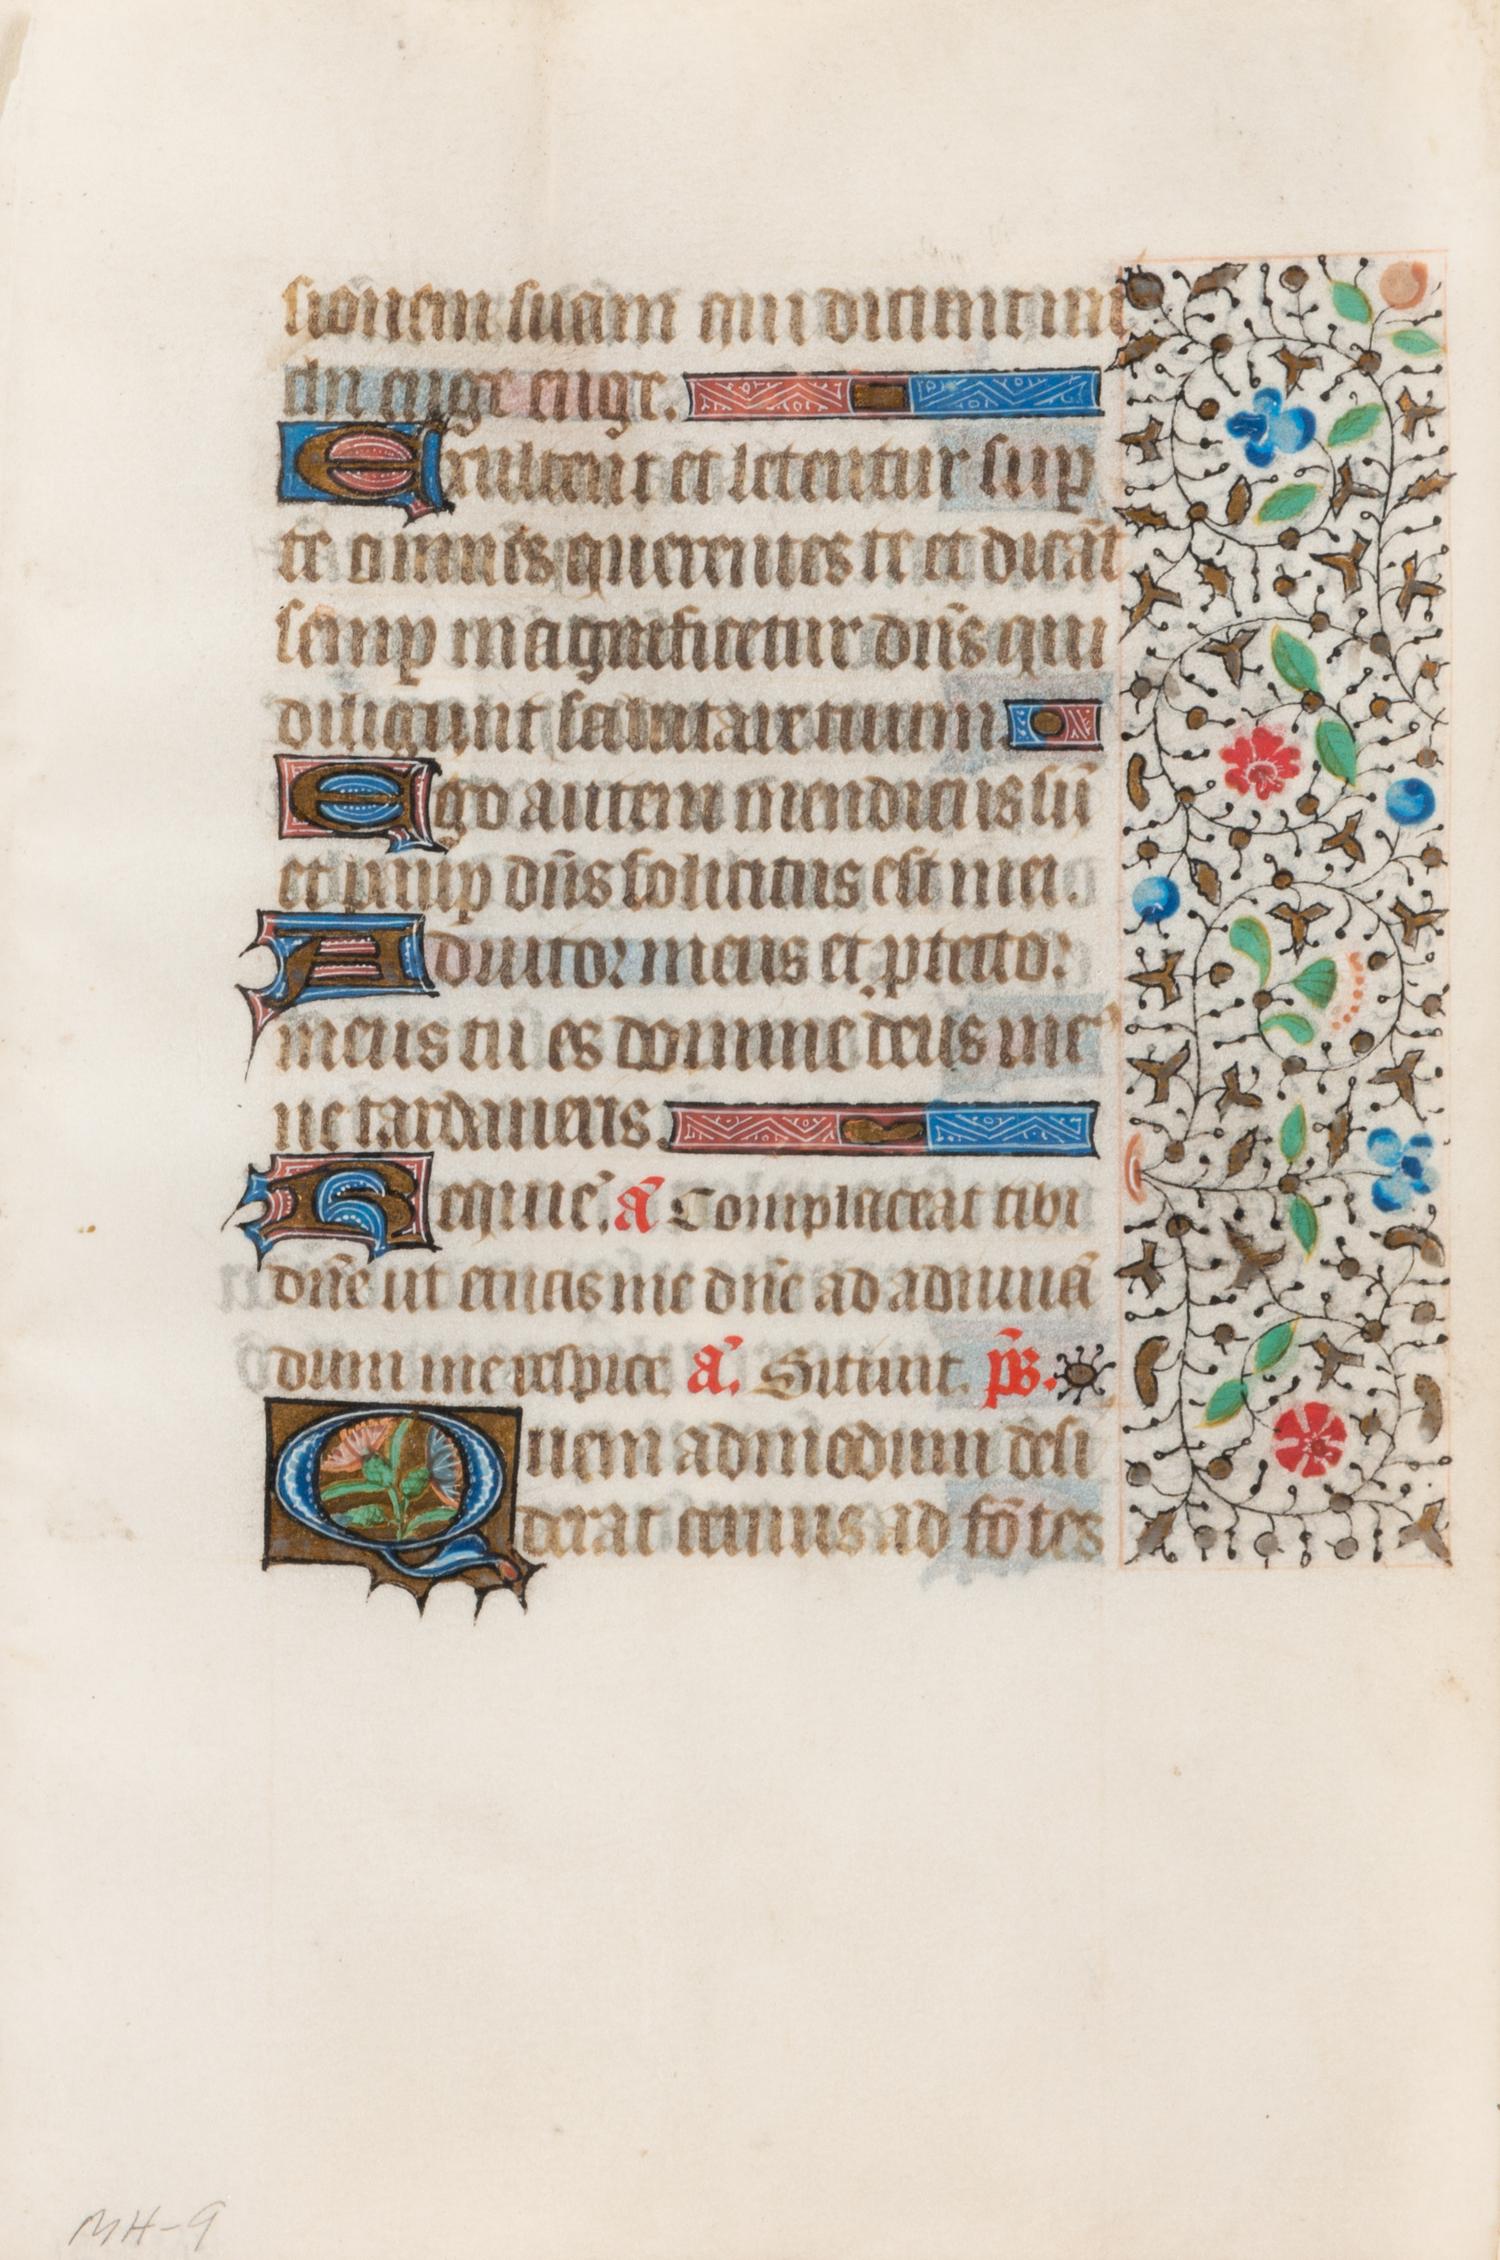 sionem suam qui dicunt mi
chi euge euge.
Exultent et letentur sup̱
te omnes querentes te et dicāt
semp̱ magnificetur dn̄s qui
diligunt salutare tuum
Ego autem mendicus sū
et paup̱ dn̄s solicitus est mei.
Adiutor meus et p̱tector
meus tu es domine deus me
ne tardaueris.
Requiē. ā Complaceat tibi
dn̄e ut eruas me dn̄e ad adiuuā
dum me respice ā. Sitiuit. p̄s.
Quem admodum desi
derat ceruus ad fōtes
MH-9